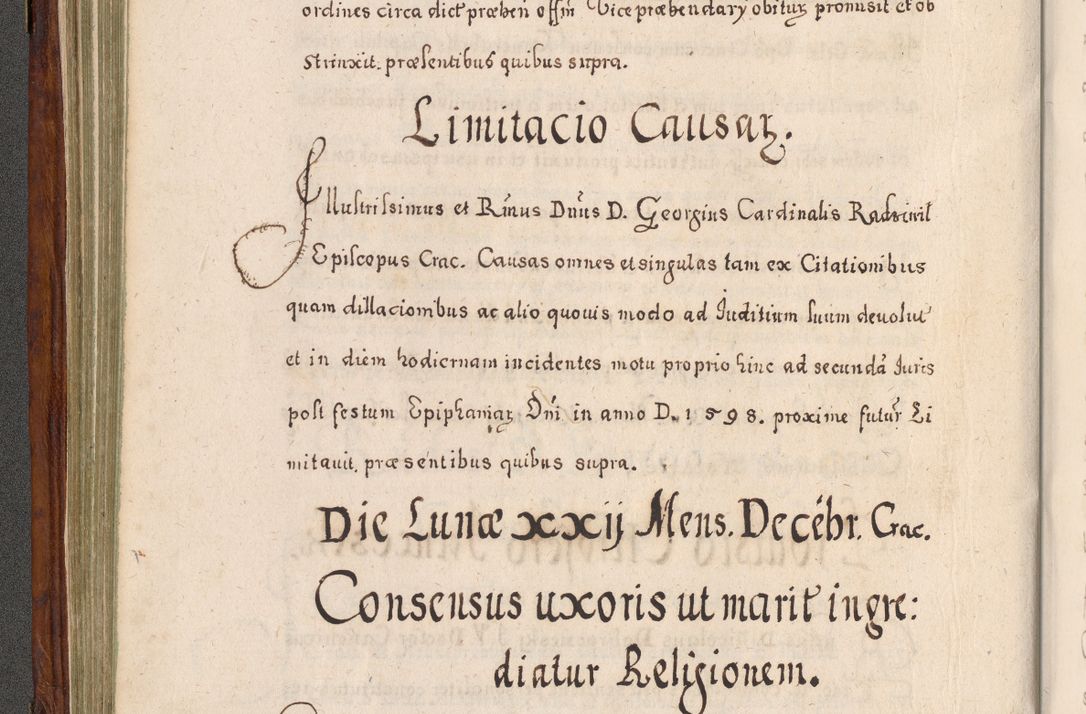 ordines circa dict præben offm Vice præbendary obituꝝ promisit et ob
strinxit. præsentibus quibus supra.
Limitacio Causaꝝ.
Illustrissimus et Rmus Dnus D. Georgius Cardinalis Radzivil
Episcopus Crac. Causas omnes et singulas tam ex Citationibus
quam dillacionibus ac alio quouis modo ad Iuditium suum deuolut
et in diem hodiernam incidentes motu proprio hinc ad secundā Iuris
post festum Epiphaniaꝝ Dni in anno D. 1598. proxime futur Li
mitauit. præsentibus quibus supra.
Die Lunæ xxij Mens. Decēbr. Crac.
Consensus uxoris ut marit ingre:
diatur Religionem.